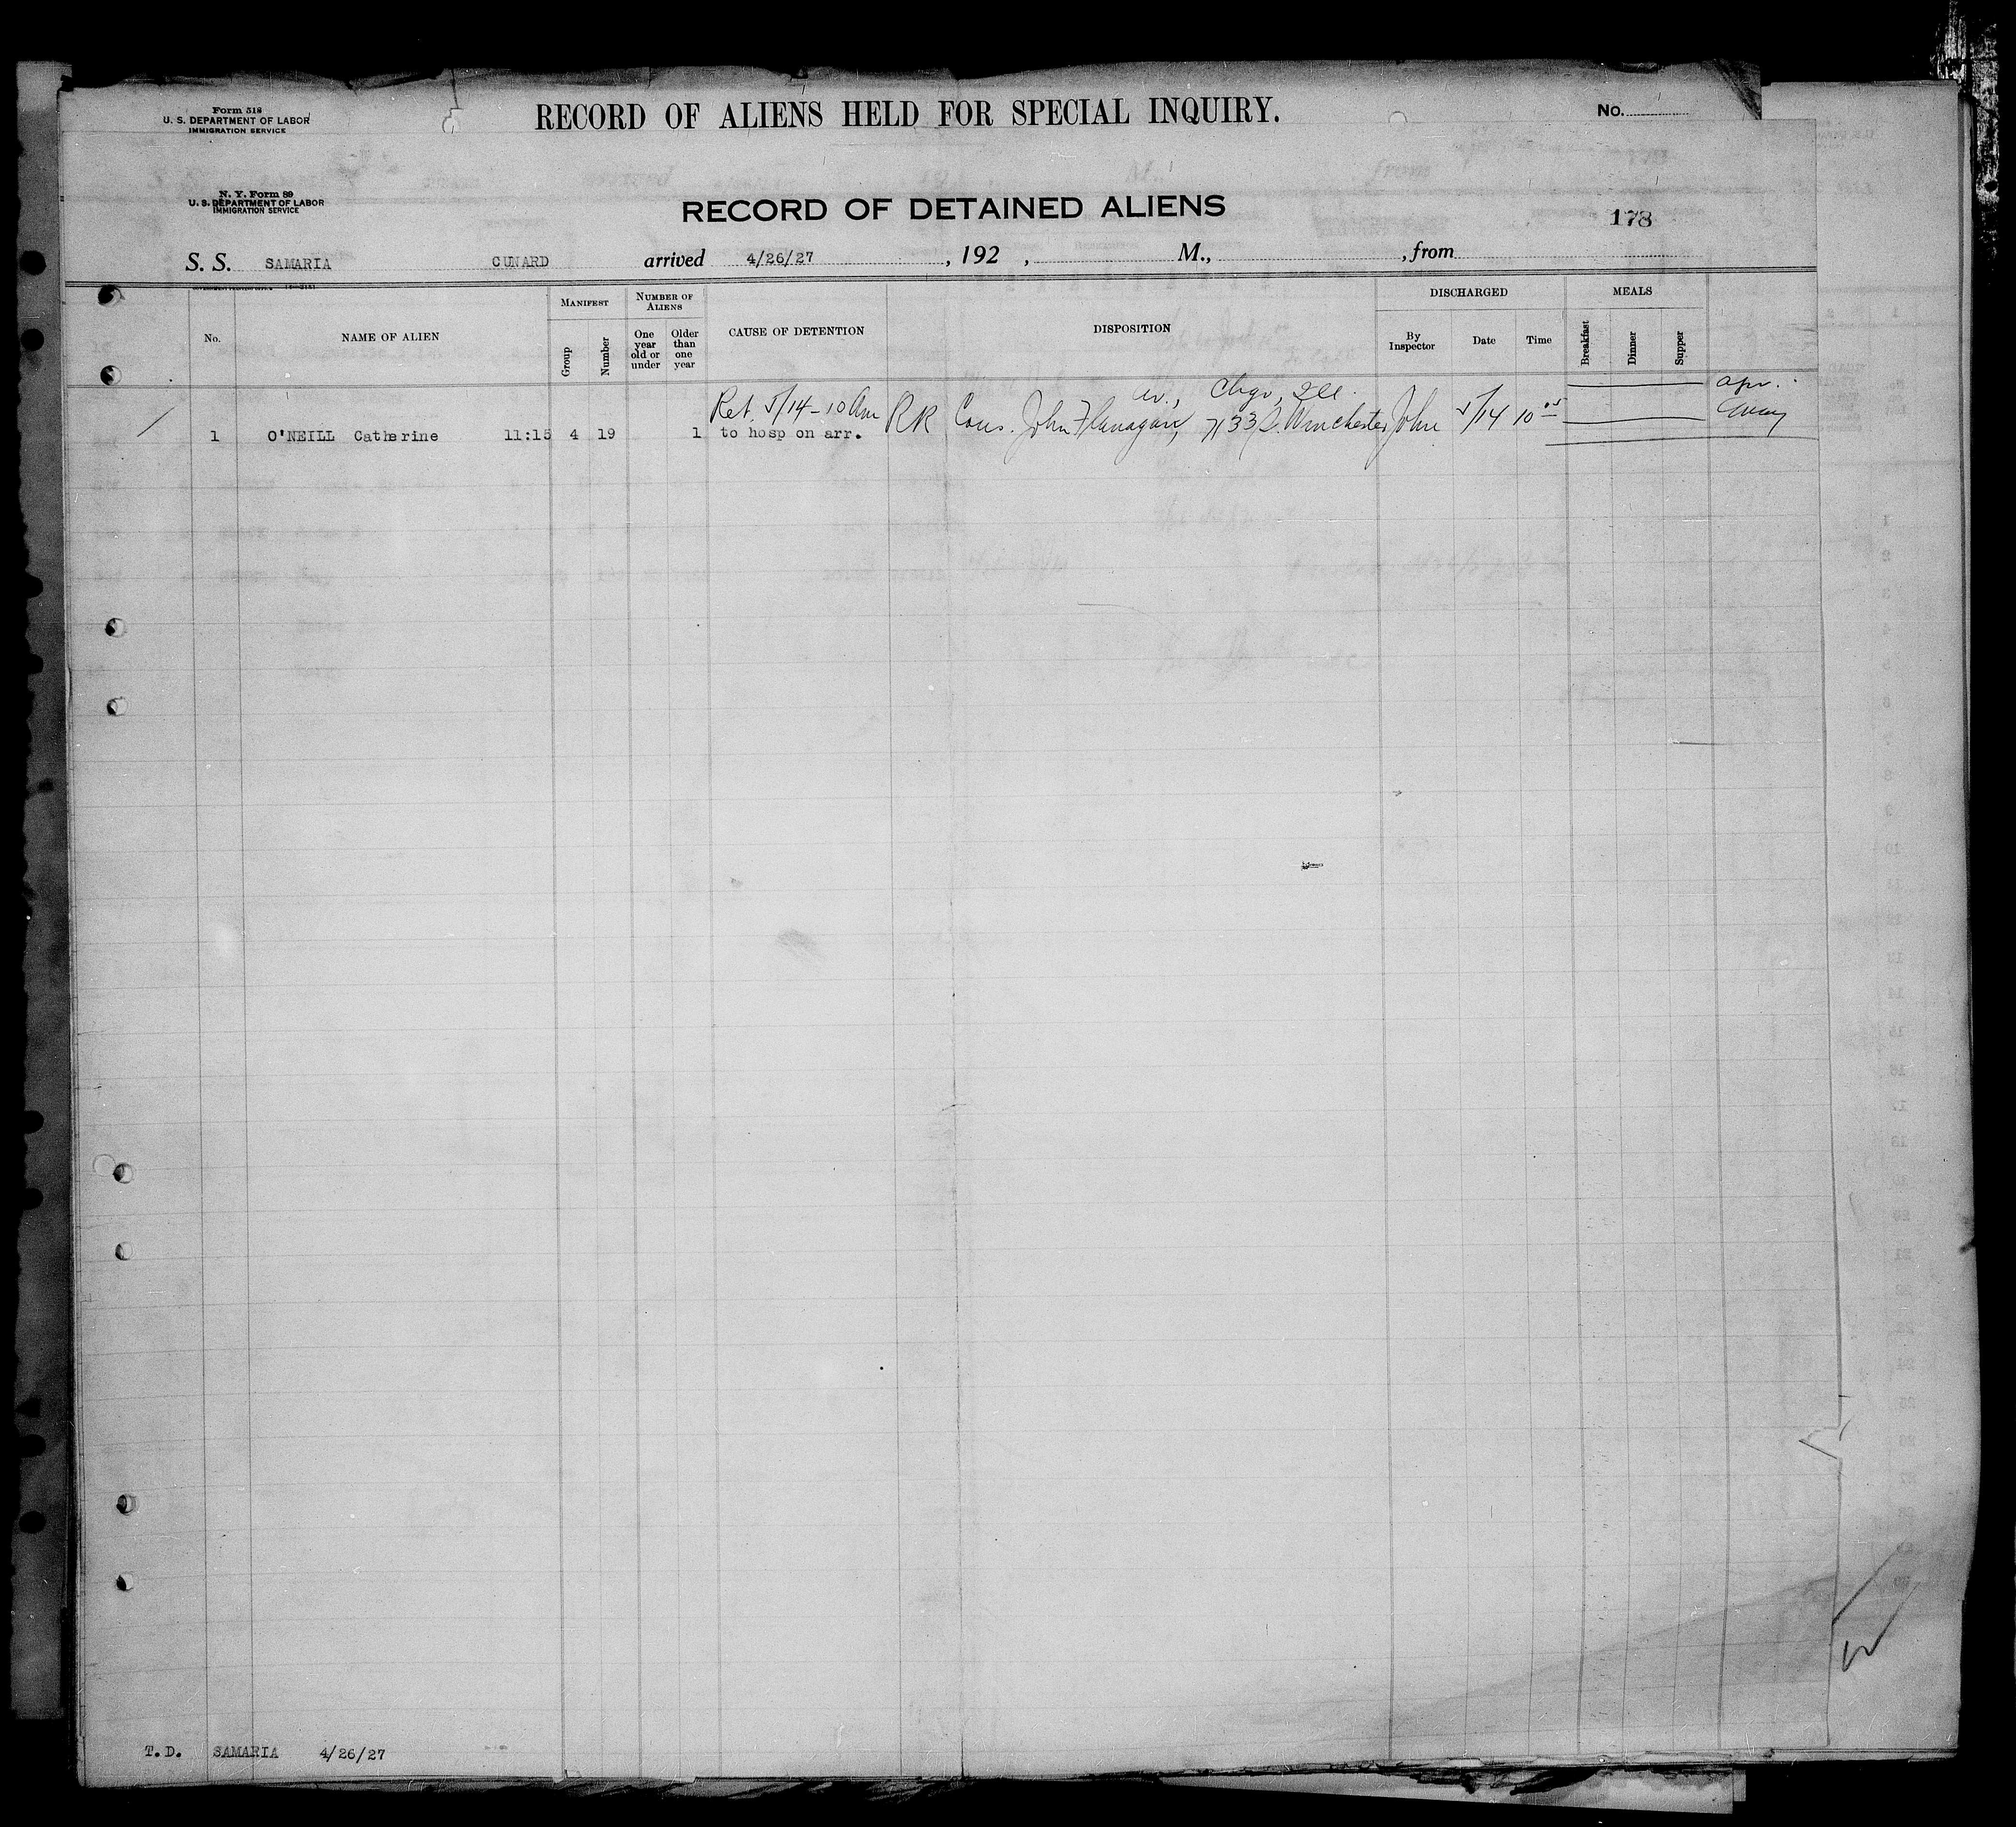 Form 518
U. S. DEPARTMENT OF LABOR
IMMIGRATION SERVICE
RECORD OF ALIENS HELD FOR SPECIAL INQUIRY.
No.
N. Y. Form 89
U. S. DEPARTMENT OF LABOR
IMMIGRATION SERVICE
RECORD OF DETAINED ALIENS
178
S. S. SAMARIA CUNARD arrived 4/26/27, 192 , M., , from
No.
NAME OF ALIEN
MANIFEST
Group
Number
NUMBER OF ALIENS
One year old or under
Older than one year
CAUSE OF DETENTION
DISPOSITION
DISCHARGED
By Inspector
Date
Time
MEALS
Breakfast
Dinner
Supper
Ret. 5/14-10 Am
av., Chgo, Ill.
1 O'NEILL Catherine 11:15 4 19 1 to hosp on arr. RR Cous. John Flanagan, 7133 S. Winchester John 5/14 10 05
T.D. SAMARIA 4/26/27